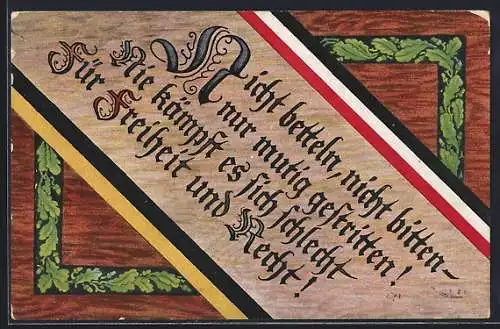 Nicht betteln, nicht bitten –
nur mutig gestritten!
Nie kämpft es sich schlecht
Für Freiheit und Recht!